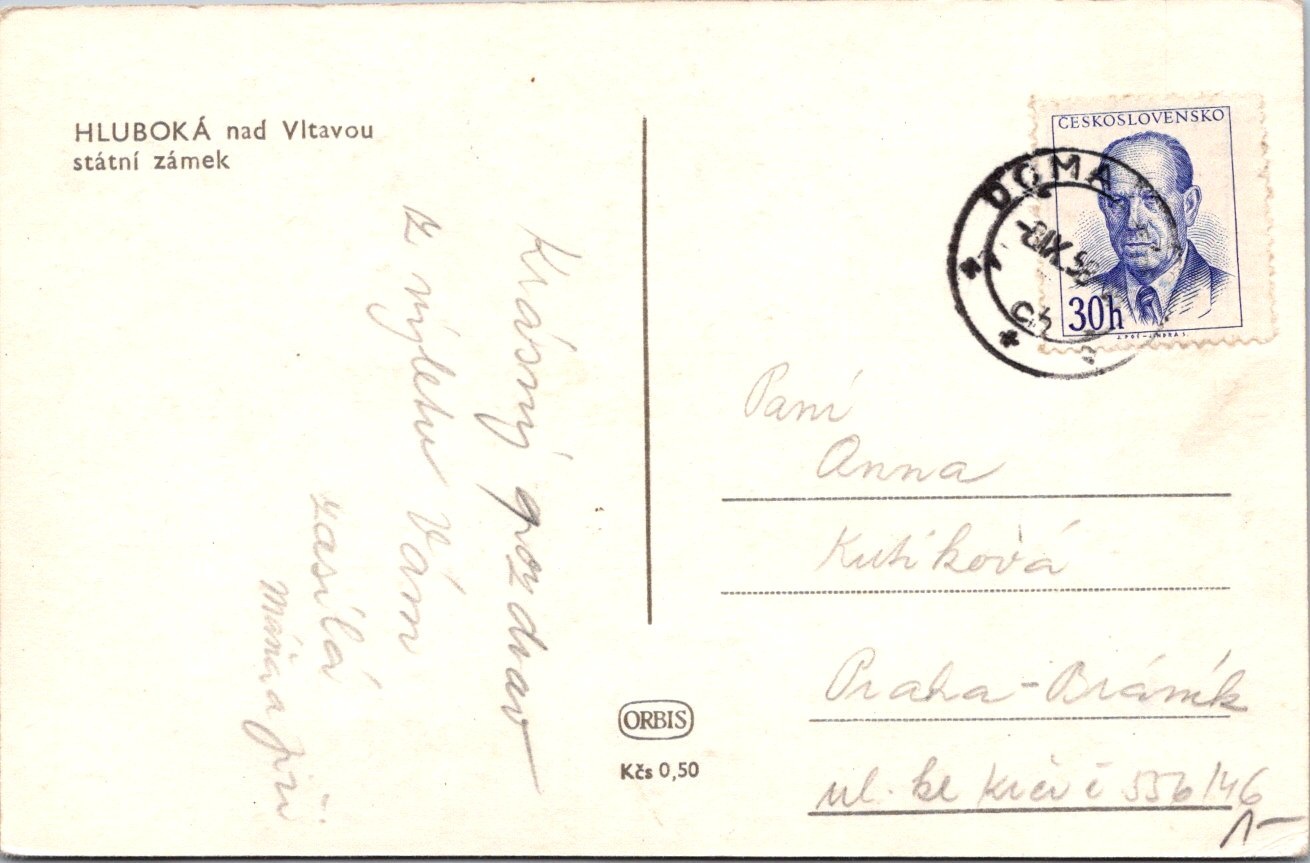 HLUBOKÁ nad Vltavou
státní zámek
Krásný pozdrav
z výletu Vám
zasílá
Máňa a Jiří
ČESKOSLOVENSKO
30h
DOMA
-8.IX.58
Paní
Anna
Kutíková
Praha-Bráník
ul. ke Krči č 556/46
ORBIS
Kčs 0,50
1-